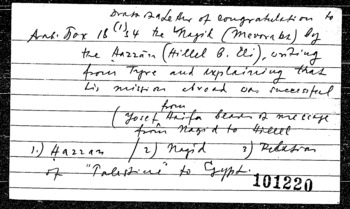 Draft of a letter of congratulation to
Ant. Box 18 (1) 34 the Nagid (Mevorakh) by
the Hazzan (Hillel b. Eli), writing
from Tyre and explaining that
his mission abroad was successful
from
(Yosef Haifa bearer of message
from Nagid to Hillel
1.) Hazzan / 2) Nagid 3) Relation
of "Palestine" to Egypt.
101220